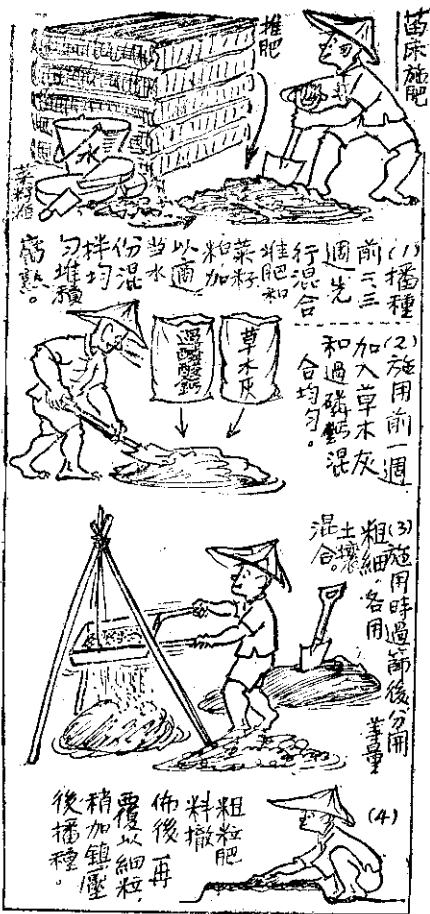 苗床施肥
堆肥
水
菜籽粕
(1)播種
前二三
週先
行混合
堆肥和
菜籽
粕加
以適
当水
份混
拌均
勻堆積
腐熟。
(2)施用前一週
加入草木灰
和過磷鈣混
合均勻。
草木灰
過磷酸鈣
(3)施用時過篩後分開
粗細。各用等量
土壤
混合。
(4)
粗粒肥
料撒
佈後再
覆以細粒,
稍加鎮壓
後播種。